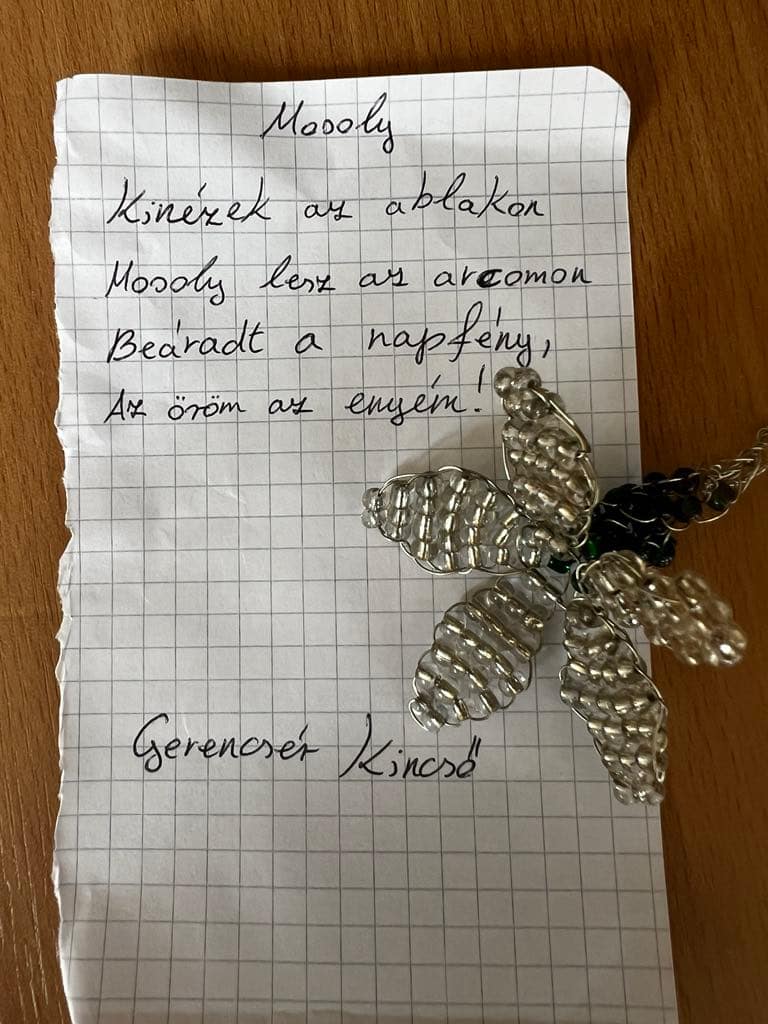 Mosoly
Kinézek az ablakon
Mosoly lesz az arcomon
Beáradt a napfény,
Az öröm az enyém!
Gerencsér Kincső